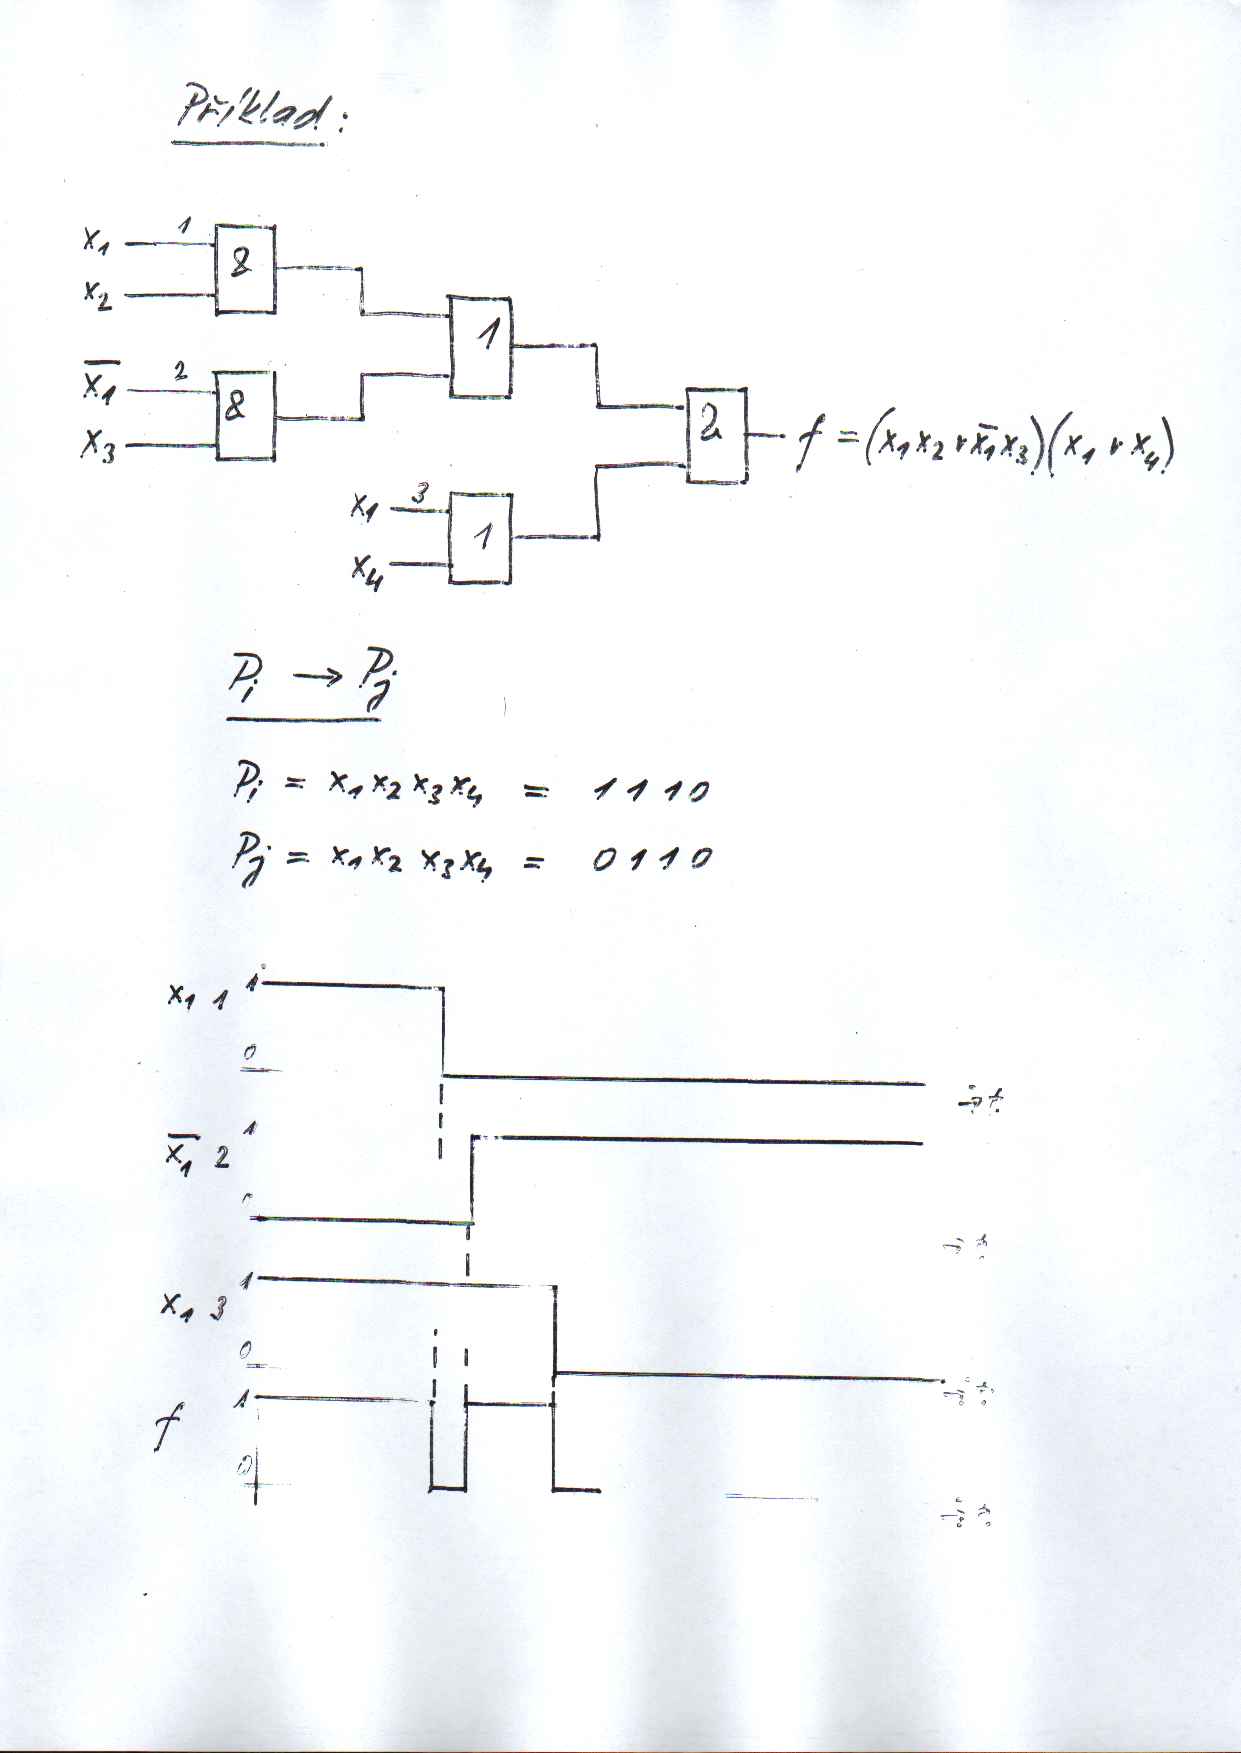 Příklad:
x₁ 1
&
x₂
1
x̄₁ 2
&
x₃
&
f = (x₁x₂ v x̄₁x₃)(x₁ v x₄)
x₁ 3
1
x₄
Pᵢ → Pⱼ
Pᵢ = x₁x₂x₃x₄ = 1110
Pⱼ = x₁x₂x₃x₄ = 0110
x₁ 1 1
0
→ t
x̄₁ 2 1
x₁ 3 1
0
→ t
f 1
0